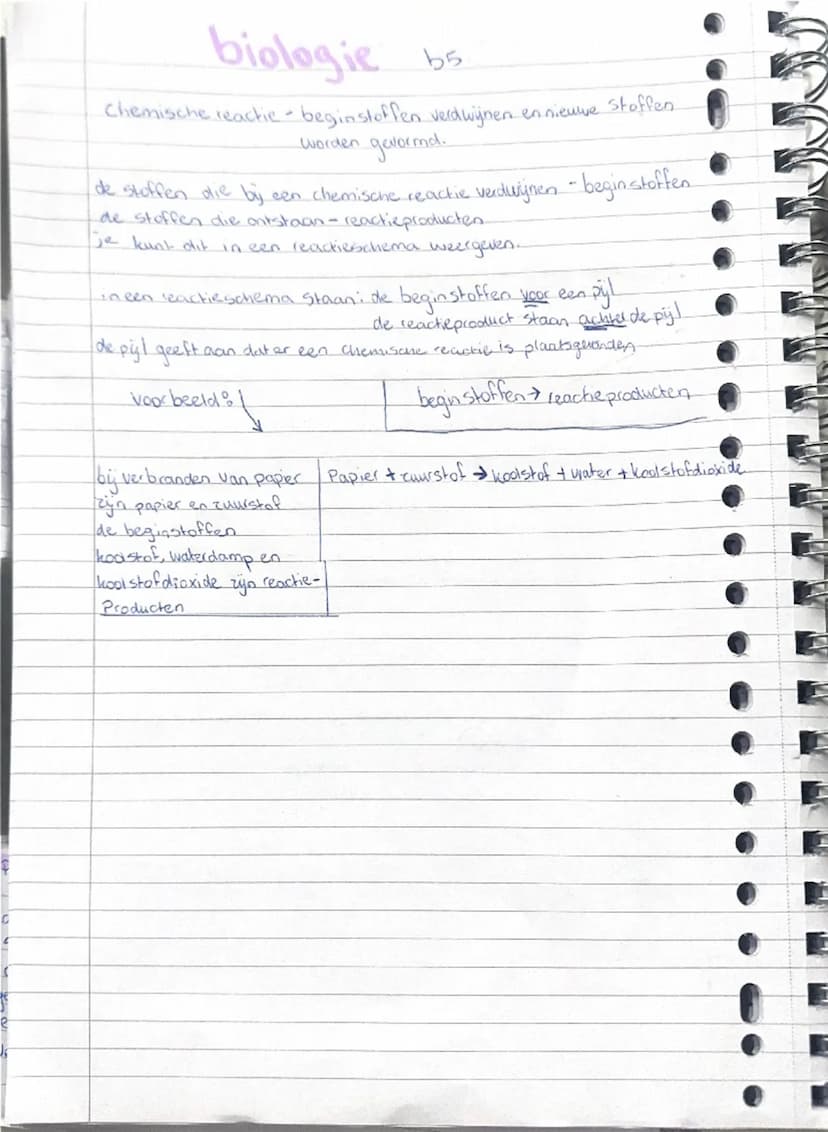 biologie b5
chemische reactie - beginstoffen verdwijnen en nieuwe stoffen
worden gevormd.
de stoffen die bij een chemische reactie verdwijnen - beginstoffen
de stoffen die ontstaan - reactieproducten
je kunt dit in een reactieschema weergeven.
in een reactieschema staan: de beginstoffen voor een pijl
de reactieproduct staan achter de pijl
de pijl geeft aan dat er een chemische reactie is plaatsgevonden
voorbeeld:
beginstoffen → reactieproducten
bij verbranden van papier
zijn papier en zuurstof
de beginstoffen
koolstof, waterdamp en
koolstofdioxide zijn reactie-
Producten
Papier + zuurstof → koolstof + water + koolstofdioxide